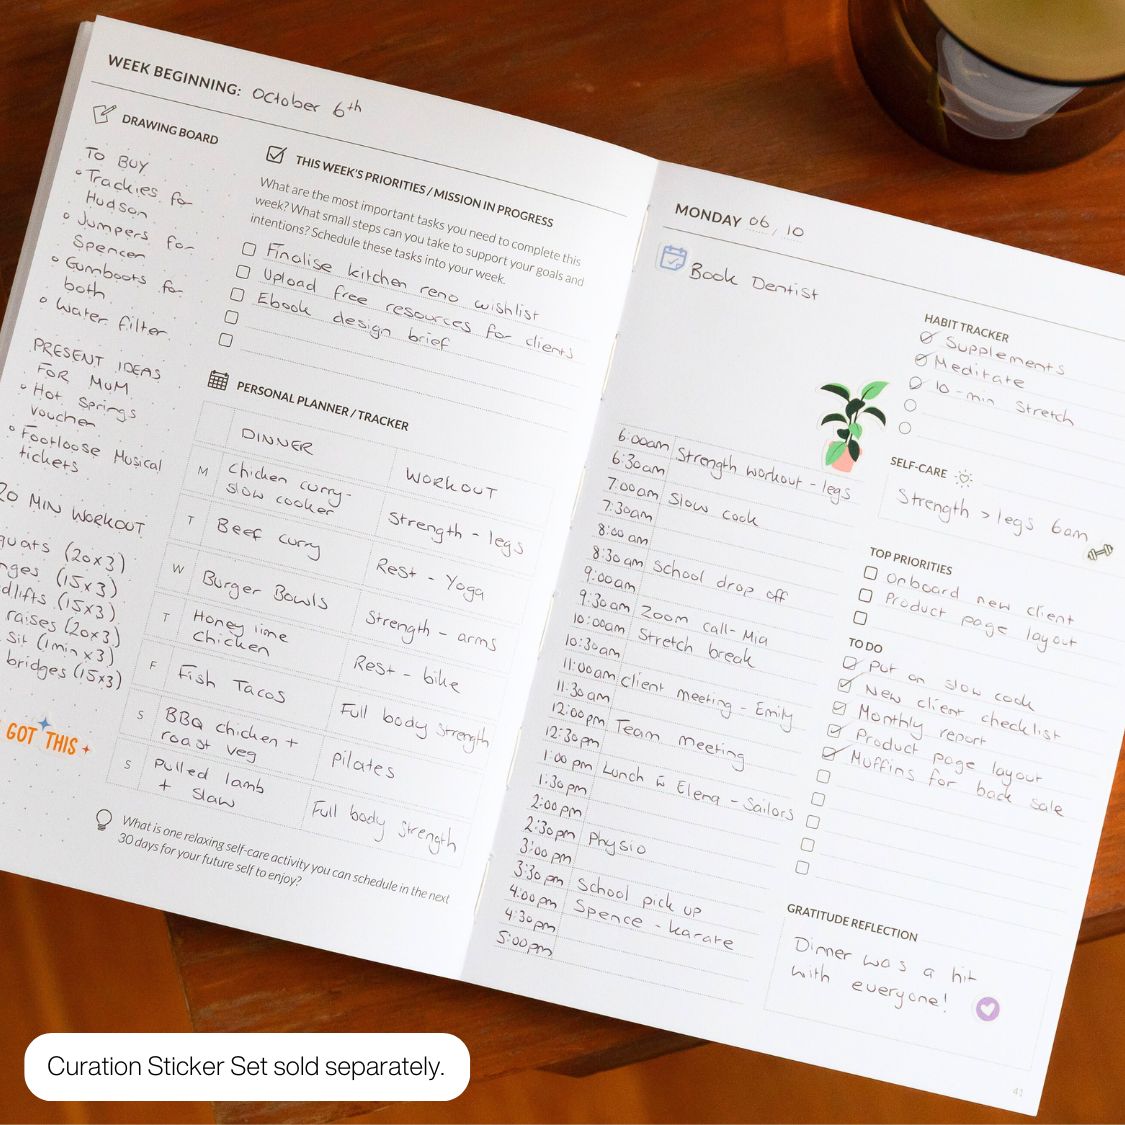 WEEK BEGINNING: October 6th
DRAWING BOARD
TO BUY
Trackies for
Hudson
Jumpers for
Spencer
Gumboots for
both
Water filter
PRESENT IDEAS
FOR MUM
Hot Springs
voucher
Footloose Musical
tickets
20 MIN WORKOUT
(20x3)
(15x3)
(15x3)
raises (20x3)
sit (1min x3)
bridges (15x3)
GOT THIS
THIS WEEK'S PRIORITIES / MISSION IN PROGRESS
What are the most important tasks you need to complete this
week? What small steps can you take to support your goals and
intentions? Schedule these tasks into your week.
Finalise kitchen reno wishlist
Upload free resources for clients
Ebook design brief
PERSONAL PLANNER / TRACKER
DINNER WORKOUT
M Chicken curry-
slow cooker Strength - legs
T Beef curry Rest - Yoga
W Burger Bowls Strength - arms
T Honey lime
chicken Rest - bike
F Fish Tacos Full body strength
S BBQ chicken +
roast veg pilates
S pulled lamb
+ slaw Full body strength
What is one relaxing self-care activity you can schedule in the next
30 days for your future self to enjoy?
MONDAY 06/10
Book Dentist
6:00am Strength workout - legs
6:30am
7:00am Slow cook
7:30am
8:00am
8:30am School drop off
9:00am
9:30am Zoom call - Mia
10:00am Stretch break
10:30am
11:00am Client meeting - Emily
11:30am
12:00pm Team meeting
12:30pm
1:00pm Lunch w Elena - Sailors
1:30pm
2:00pm
2:30pm Physio
3:00pm
3:30pm School pick up
4:00pm Spence - karate
4:30pm
5:00pm
HABIT TRACKER
Supplements
Meditate
10-min Stretch
SELF-CARE
Strength > legs 6am
TOP PRIORITIES
Onboard new client
Product page layout
TO DO
Put on slow cook
New client checklist
Monthly report
Product page layout
Muffins for back sale
GRATITUDE REFLECTION
Dinner was a hit
with everyone!
41
Curation Sticker Set sold separately.